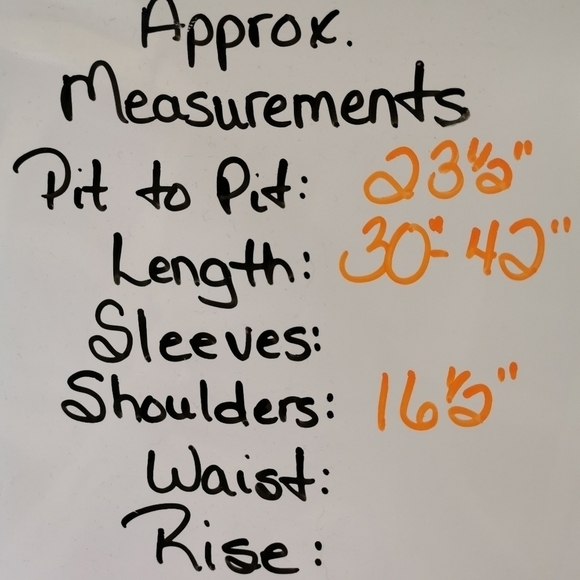 Approx.
Measurements
Pit to Pit: 23 1/2"
Length: 30"- 42"
Sleeves:
Shoulders: 16 1/2"
Waist:
Rise: